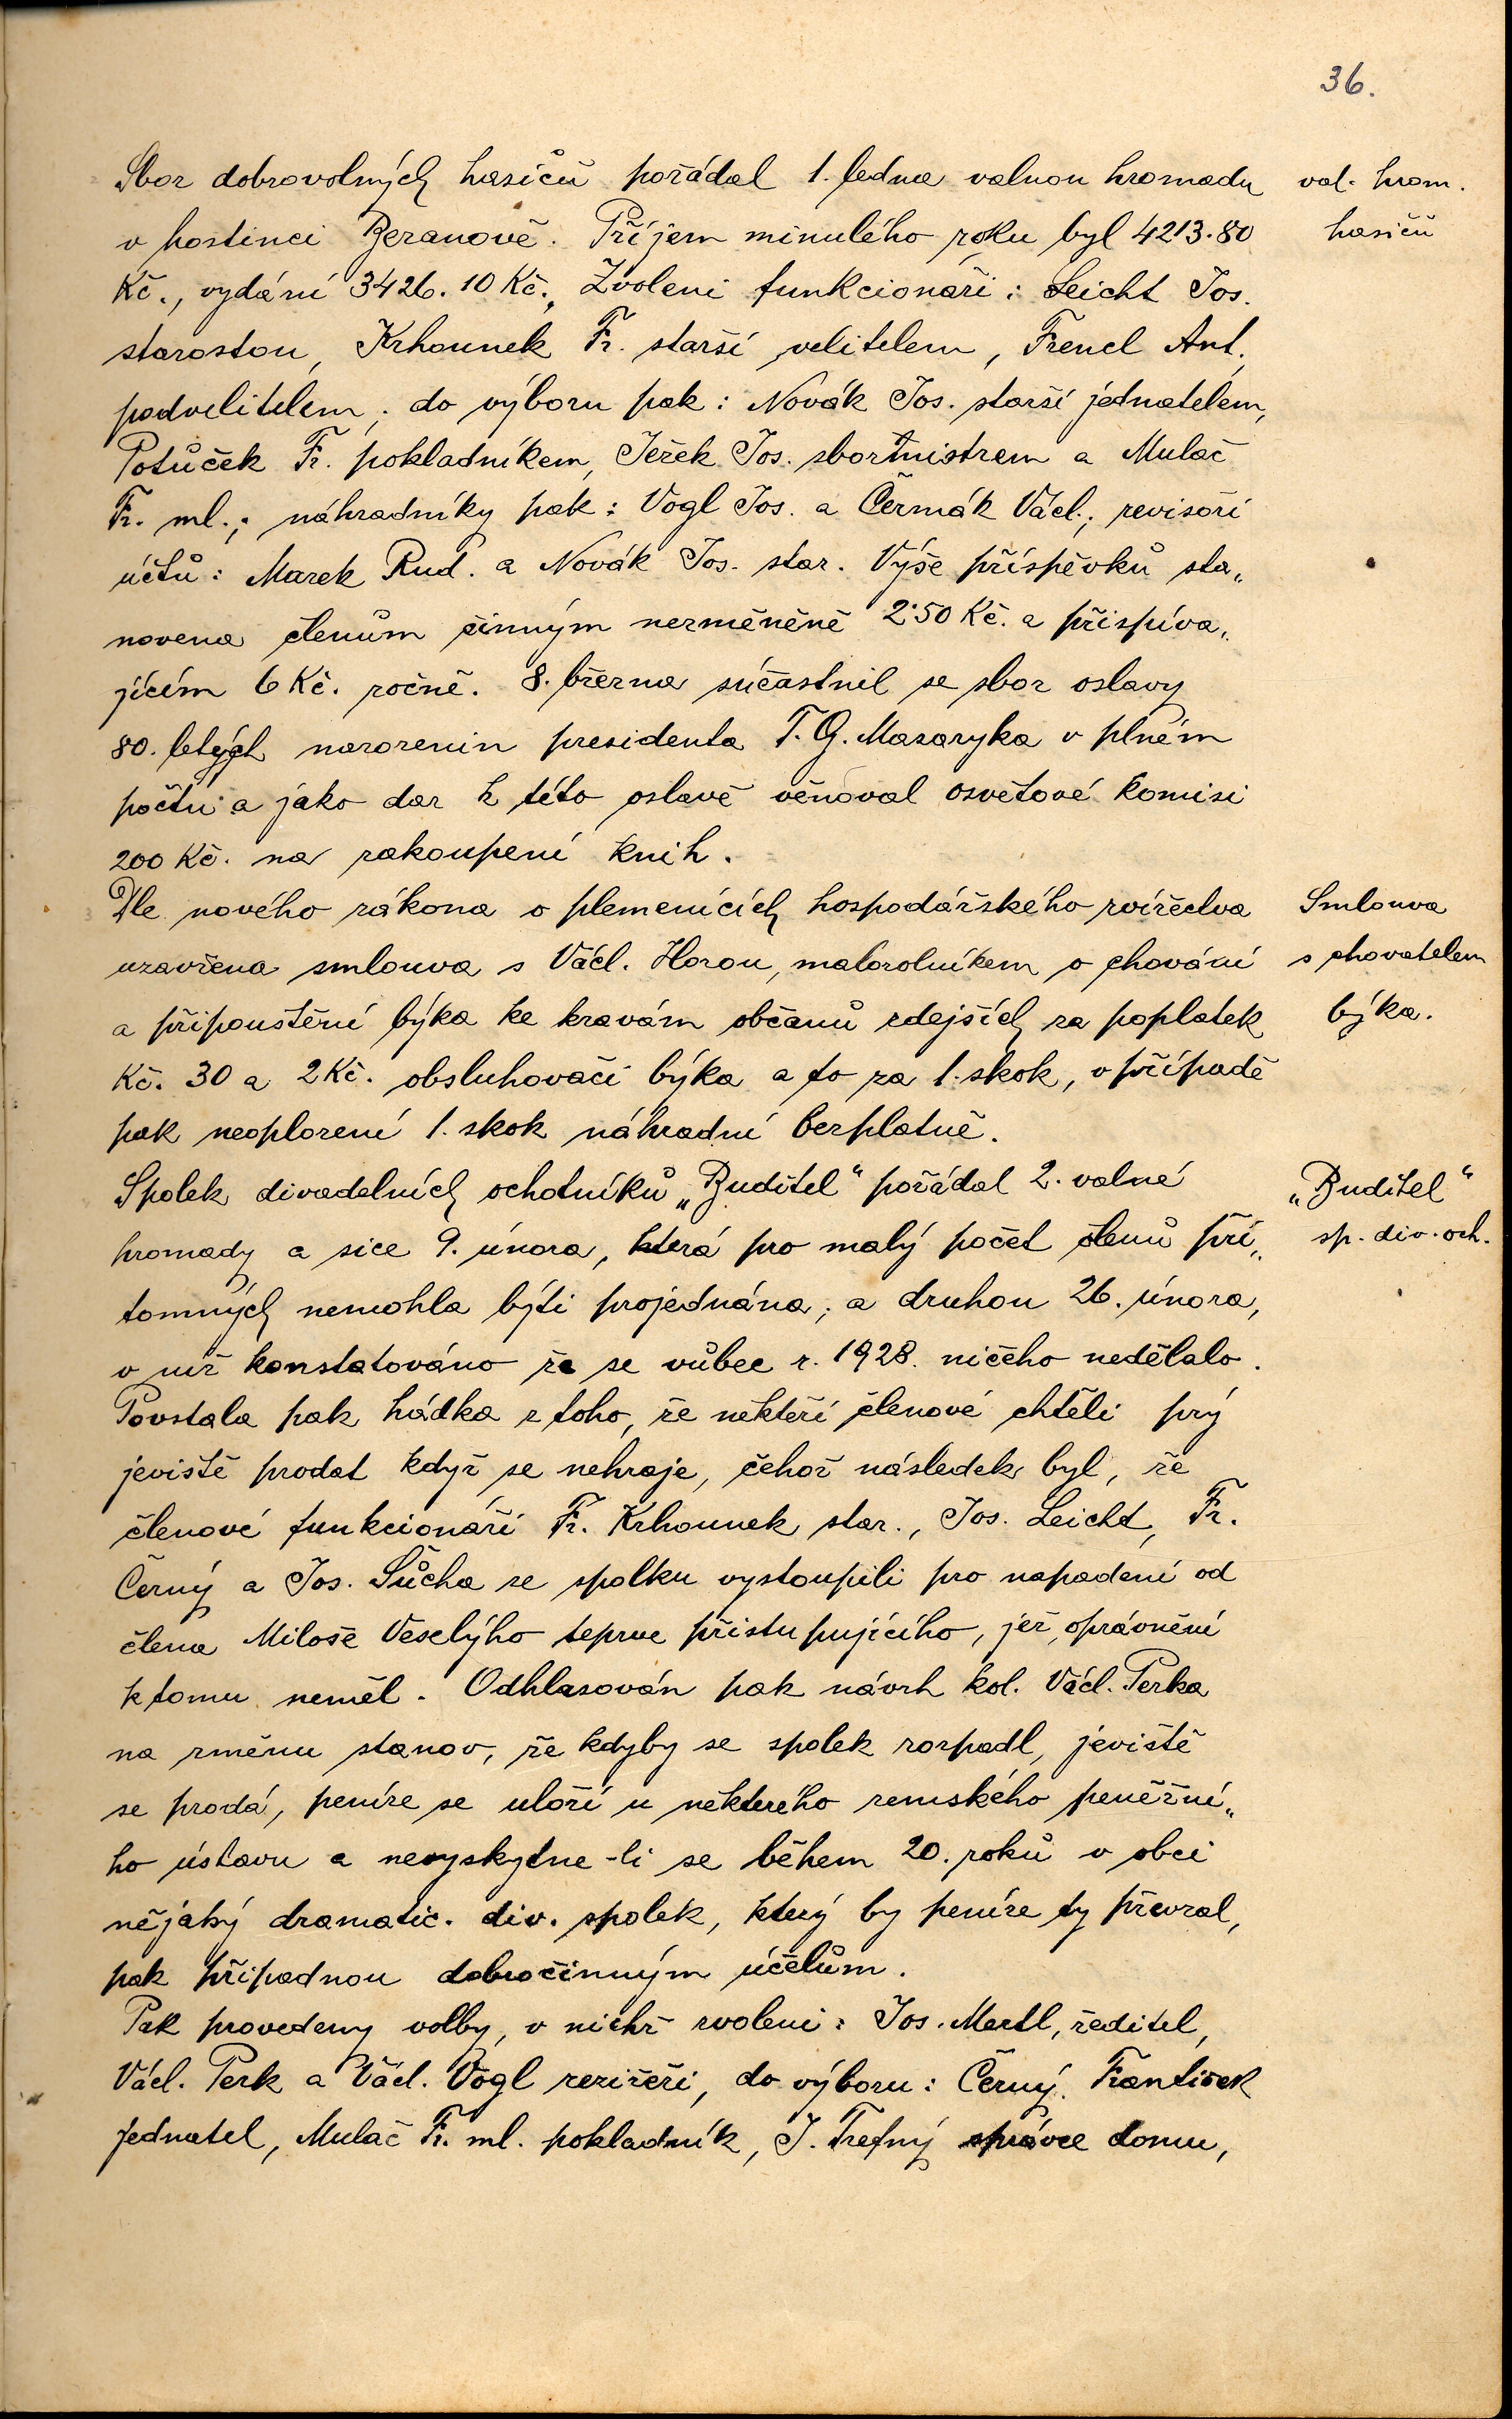 36.
Sbor dobrovolných hasičů pořádal 1. ledna valnou hromadu
val. hrom.
v hostinci Beranově. Příjem minulého roku byl 4213.80
hasičů
Kč., vydání 3426.10 Kč., Zvoleni funkcionáři: Leicht Jos.
starostou, Krhounek Fr. starší velitelem, Frencl Ant.
podvelitelem; do výboru pak: Novák Jos. starší jednatelem,
Potůček Fr. pokladníkem, Ježek Jos. sbormistrem a Mulač
Fr. ml.; náhradníky pak: Vogl Jos. a Čermák Václ.; revisoři
účtů: Marek Rud. a Novák Jos. star. Výše příspěvků sta„
novena členům činným nezměněně 2.50 Kč. a přispíva„
jícím 6 Kč. ročně. 8. března súčastnil se sbor oslavy
80. letých narozenin presidenta T. G. Masaryka v plném
počtu a jako dar k této oslavě věnoval osvětové komisi
200 Kč. na zakoupení knih.
Dle nového zákona o plemenících hospodářského zvířectva
Smlouva
uzavřena smlouva s Václ. Horou, malorolníkem o chování
s chovatelem
a připouštění býka ke kravám občanů zdejších za poplatek
býka.
Kč. 30 a 2 Kč. obsluhovači býka a to za 1. skok, v případě
pak neoplození 1. skok náhradní bezplatně.
Spolek divadelních ochotníků „Buditel“ pořádal 2. valné
„Buditel“
hromady a sice 9. února, která pro malý počet členů pří„
sp. div. och.
tomných nemohla býti projednána; a druhou 26. února,
v níž konstatováno že se vůbec r. 1928. ničeho nedělalo.
Povstala pak hádka z toho, že někteří členové chtěli prý
jeviště prodat když se nehraje, čehož následek byl, že
členové funkcionáři Fr. Krhounek star., Jos. Leicht, Fr.
Černý a Jos. Sůcha ze spolku vystoupili pro napadení od
člena Miloše Veselýho teprve přistupujícího, jež oprávnění
k tomu neměl. Odhlasován pak návrh kol. Václ. Perka
na změnu stanov, že kdyby se spolek rozpadl, jeviště
se prodá, peníze se uloží u některého zemského peněžní„
ho ústavu a nevyskytne-li se během 20. roků v obci
nějaký dramatic. div. spolek, který by peníze ty převzal,
pak připadnou dobročinným účelům.
Pak provedeny volby, v nichž zvoleni: Jos. Mertl, ředitel,
Václ. Perk a Václ. Vogl režiséři, do výboru: Černý František
jednatel, Mulač Fr. ml. pokladník, J. Trefný správce domu,